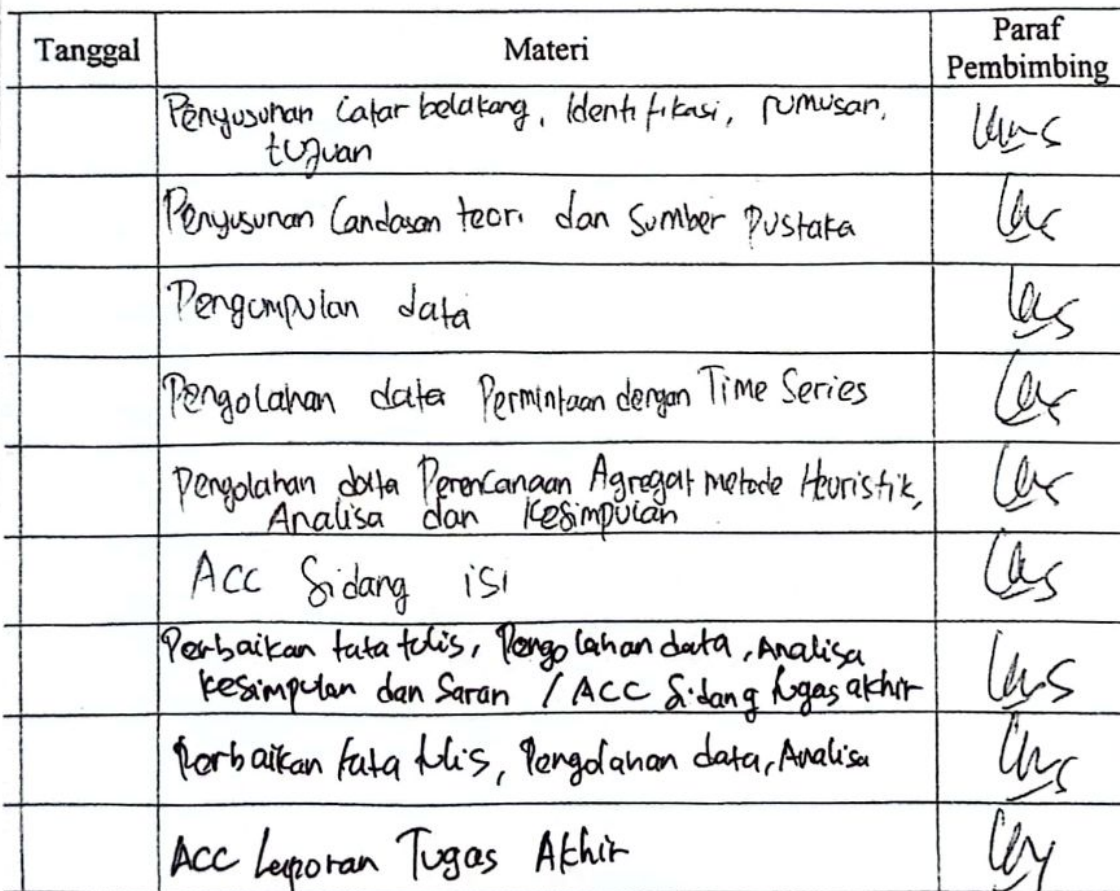 Tanggal
Materi
Paraf
Pembimbing
Penyusunan latar belakang, Identifikasi, rumusan,
tujuan
Penyusunan landasan teori dan Sumber Pustaka
Pengumpulan data
Pengolahan data Permintaan dengan Time Series
Pengolahan data Perencanaan Agregat metode Heuristik,
Analisa dan Kesimpulan
ACC Sidang isi
Perbaikan tata tulis, Pengolahan data, Analisa
kesimpulan dan Saran / ACC Sidang tugas akhir
Perbaikan tata tulis, Pengolahan data, Analisa
ACC Laporan Tugas Akhir